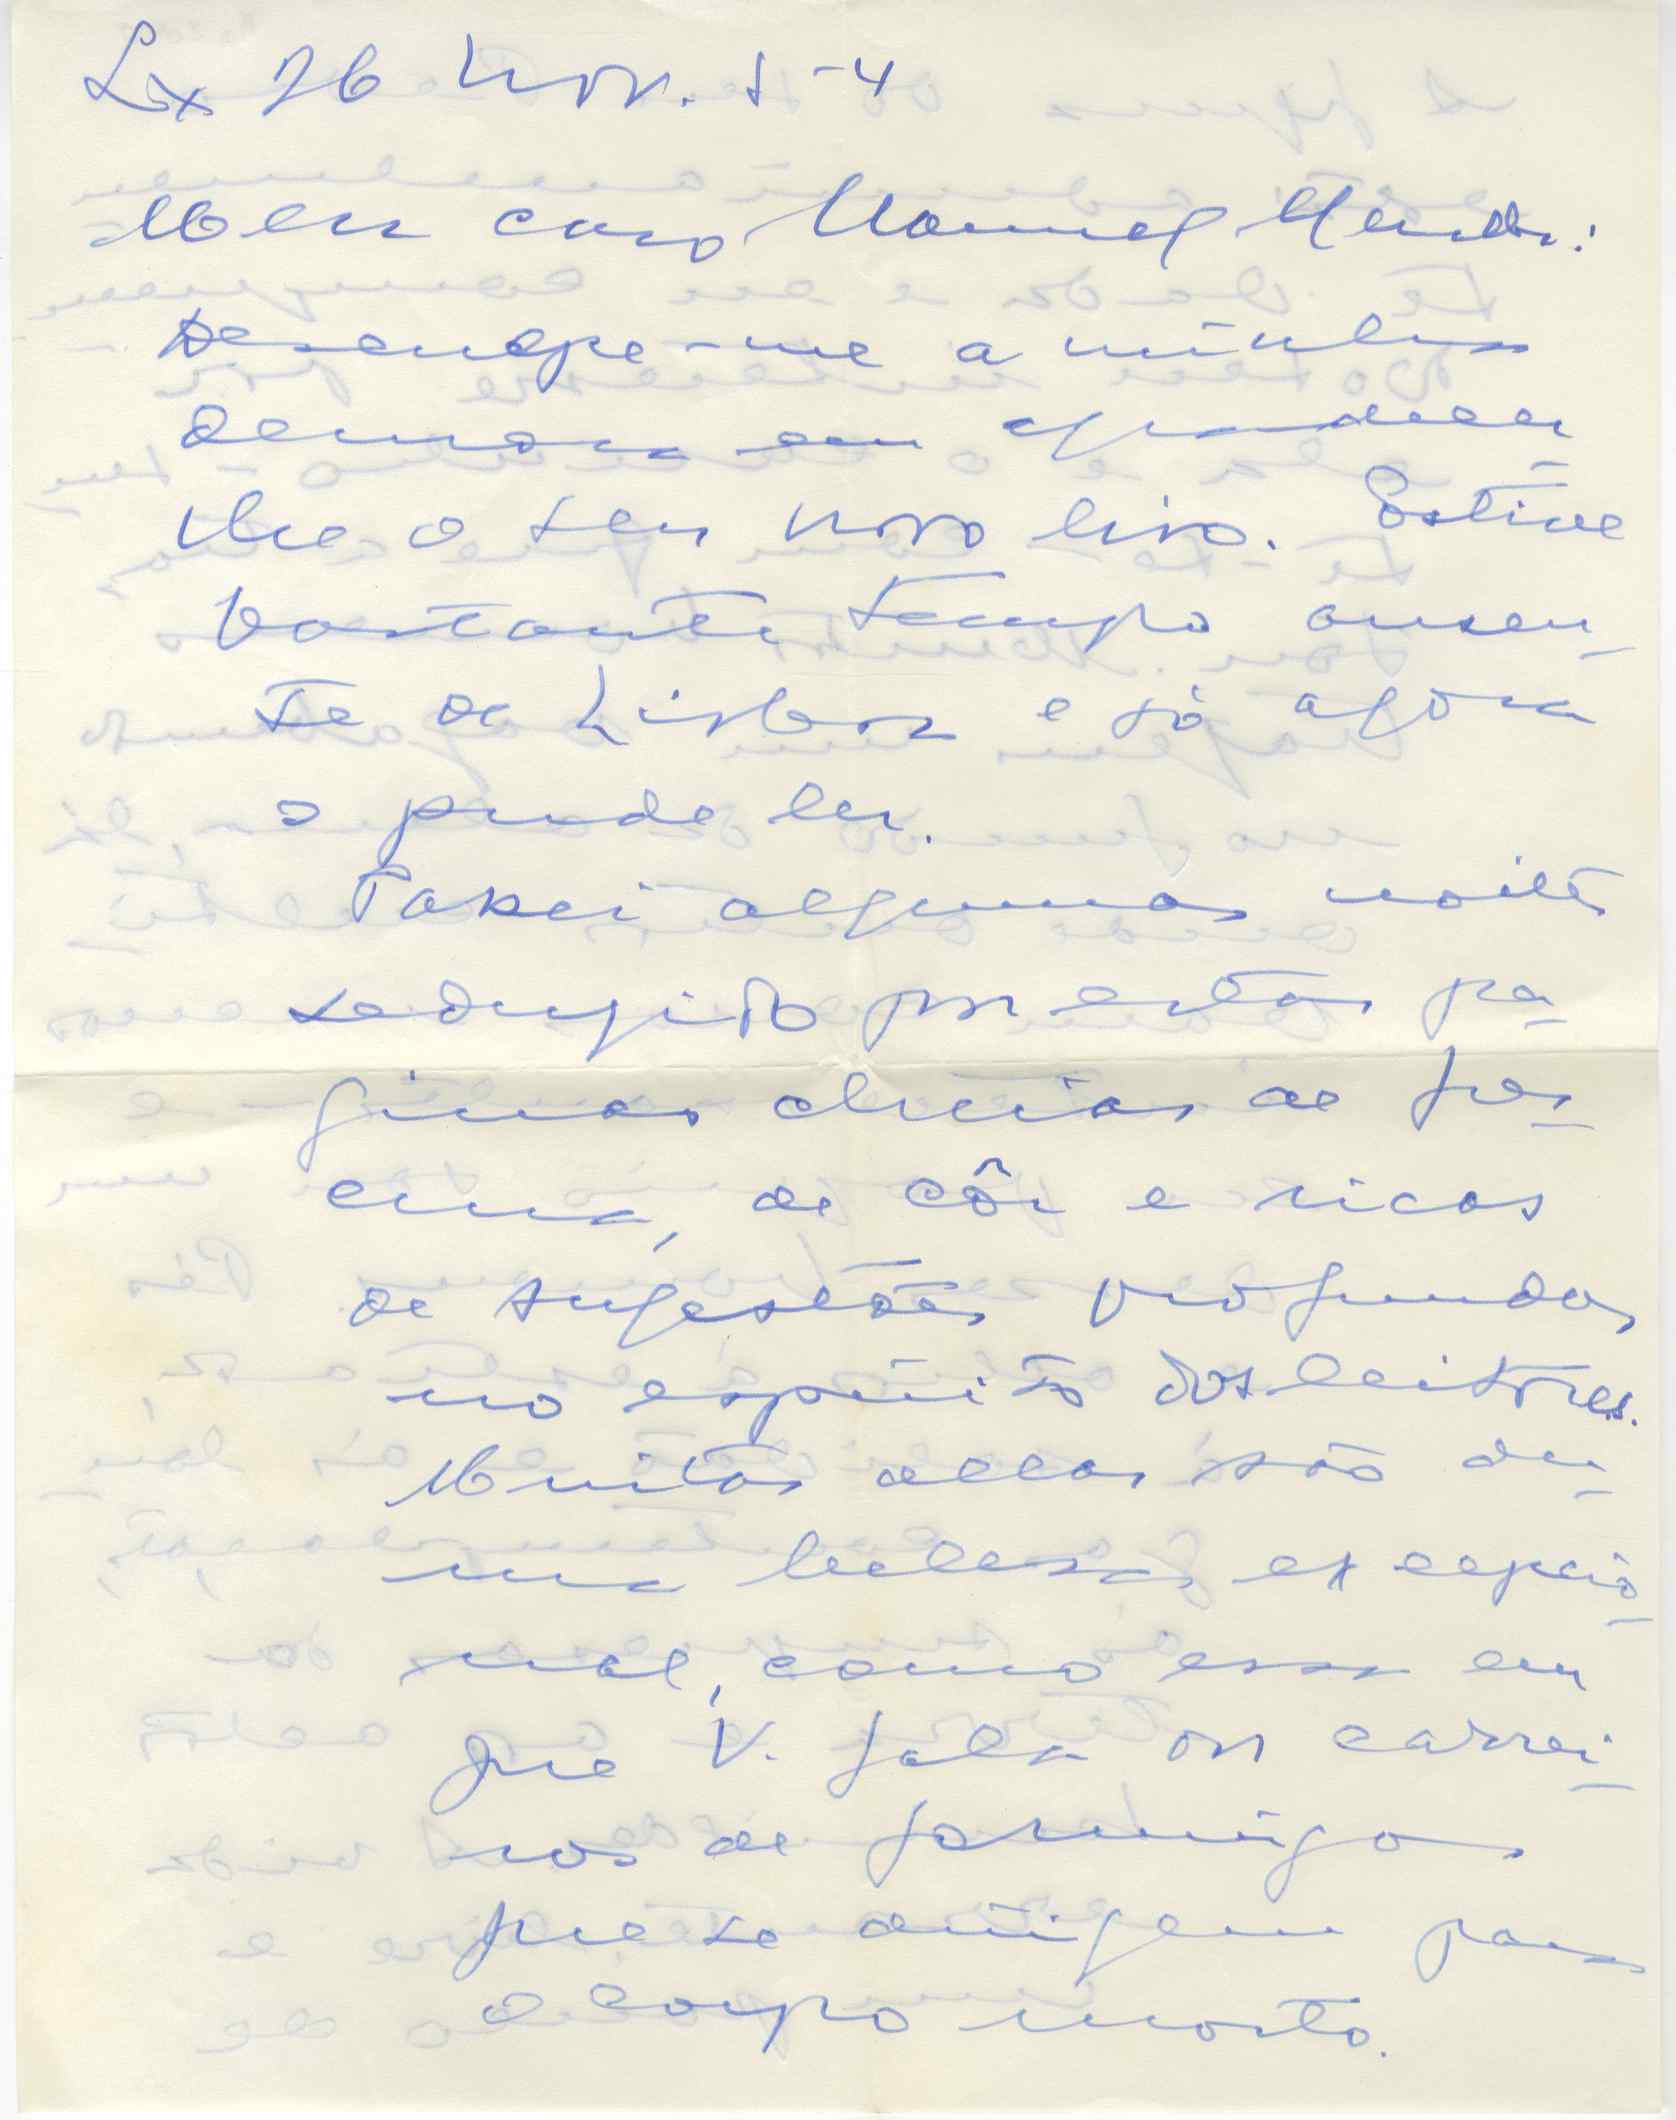 Lx 26 Nov. 5-4
Meu caro Manuel Mendes:
Desculpe-me a minha
demora em agradecer
lhe o seu novo livro. Estive
bastante tempo ausen-
te de Lisboa e só agora
o pude ler.
Passei algumas noites
seduzido por estas pa-
ginas cheias de poe-
de côr e ricas
de sugestões profundas
no espirito dos leitores.
Muitas dellas são du-
ma beleza excepcio-
nal, como essa em
que V. fala nos carrei-
ros de formigas
que se dirigem para
o corpo morto.